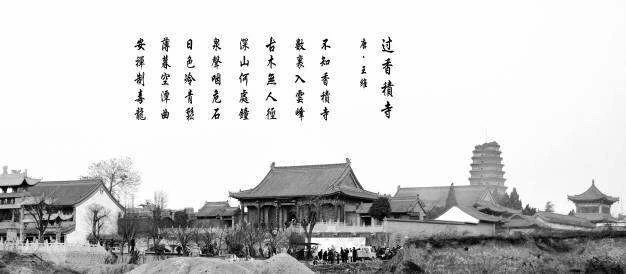 過香積寺
唐·王維
不知香積寺
數裏入雲峰
古木無人徑
深山何處鐘
泉聲咽危石
日色冷青鬆
薄暮空潭曲
安禪制毒龍